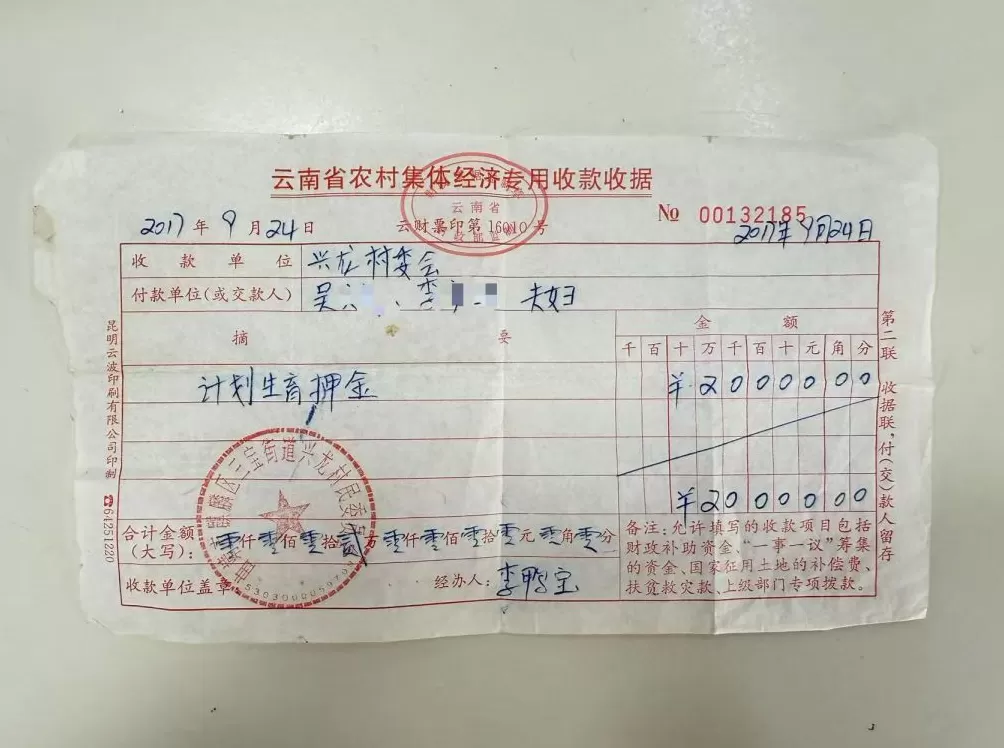 云南省农村集体经济专用收款收据
云南省
2017年9月24日
云财票印第16010号
№ 00132185
2017年9月24日
收款单位 兴龙村委会
付款单位(或交款人) 吴 李 夫妇
摘要
金额
千百十万千百十元角分
计划生育押金
¥2000000
¥2000000
合计金额(大写): 零仟零佰零拾贰万零仟零佰零拾零元零角零分
收款单位盖章:
经办人:李鸭宝
备注:允许填写的收款项目包括
财政补助资金、“一事一议”筹集
的资金、国家征用土地的补偿费、
扶贫救灾款、上级部门专项拨款。
第二联 收据联,付(交)款人留存
昆明云波印刷有限公司印制 ☎64251220
麒麟区三宝街道兴龙村民委